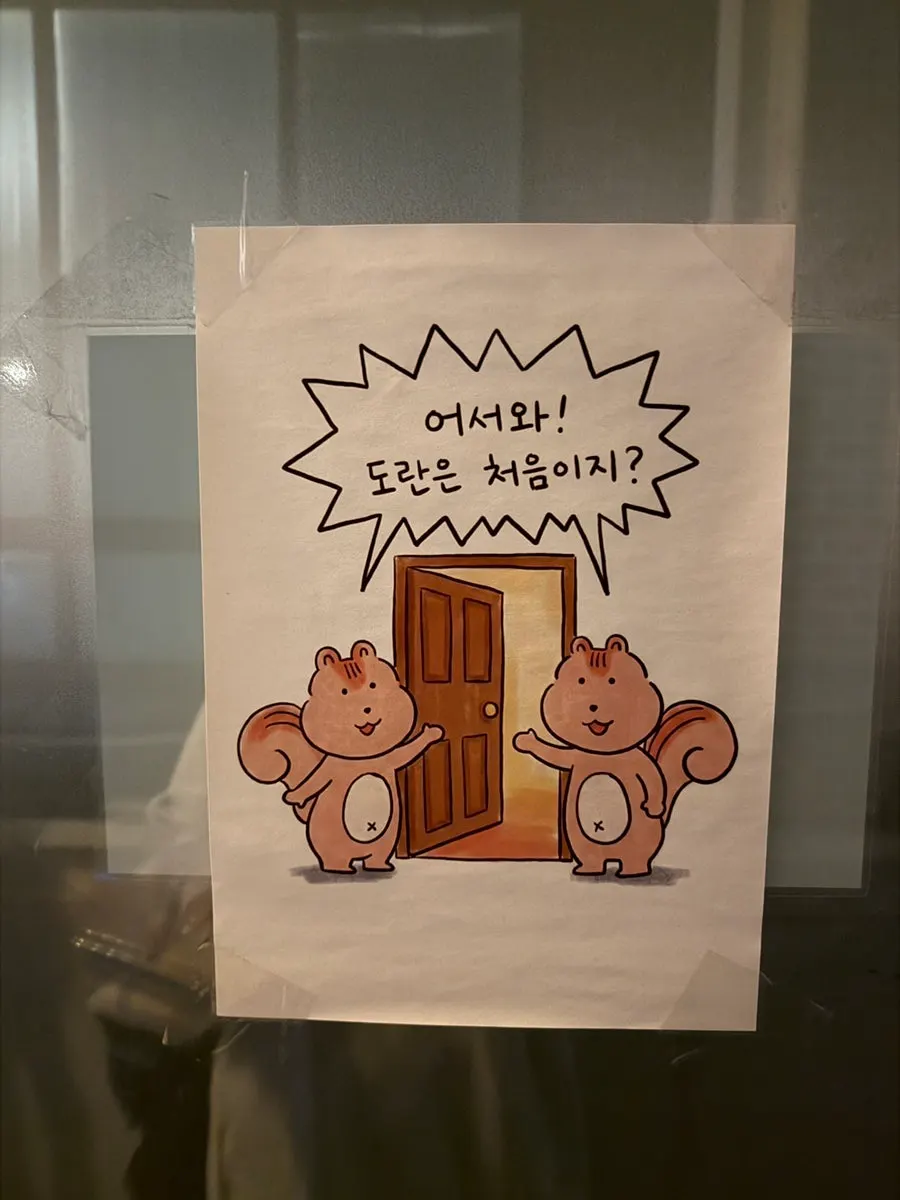 어서와!
도란은 처음이지?